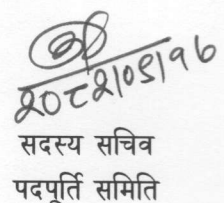 २०८२।०९।१६
सदस्य सचिव
पदपूर्ति समिति